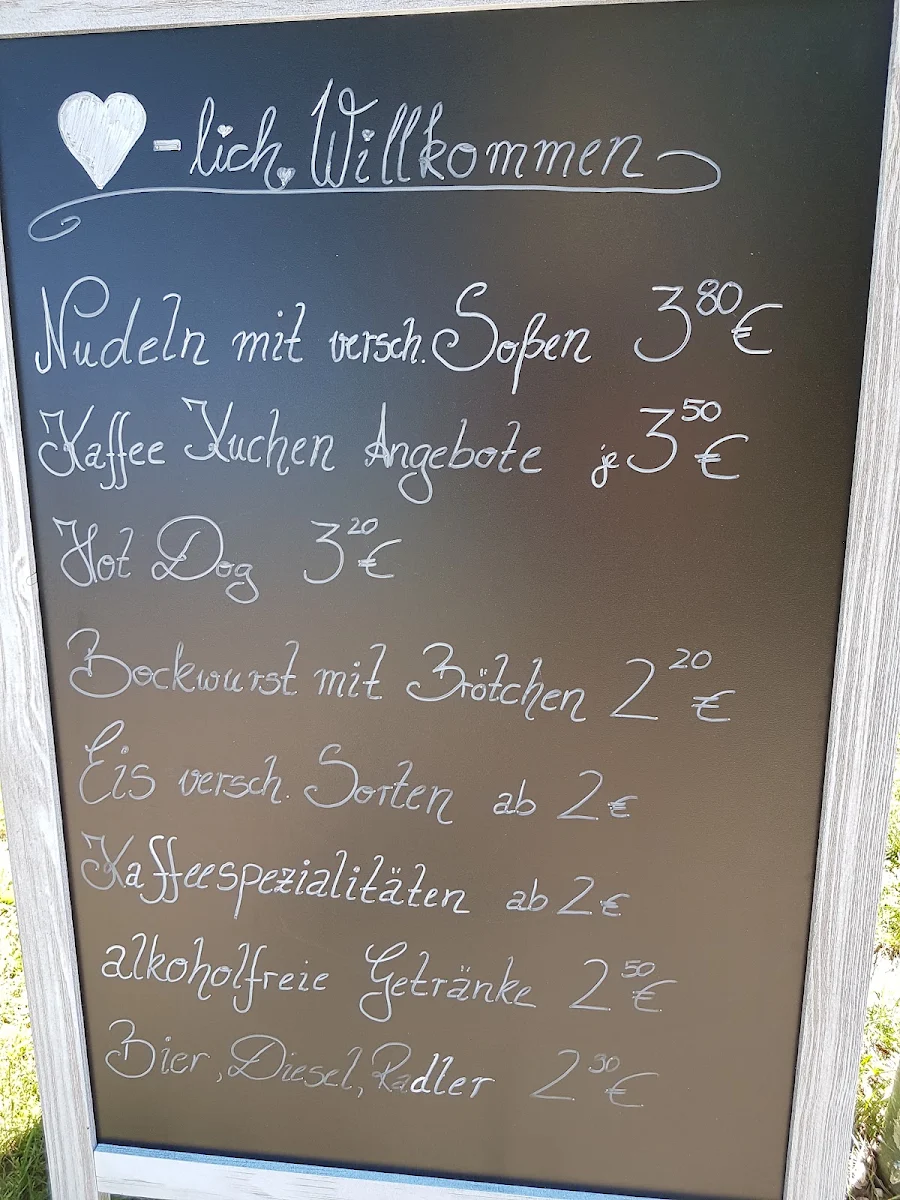 ♥-lich Willkommen
Nudeln mit versch. Soßen 3 80 €
Kaffee Kuchen Angebote je 3 50 €
Hot Dog 3 20 €
Bockwurst mit Brötchen 2 20 €
Eis versch. Sorten ab 2 €
Kaffeespezialitäten ab 2 €
alkoholfreie Getränke 2 50 €
Bier, Diesel, Radler 2 30 €